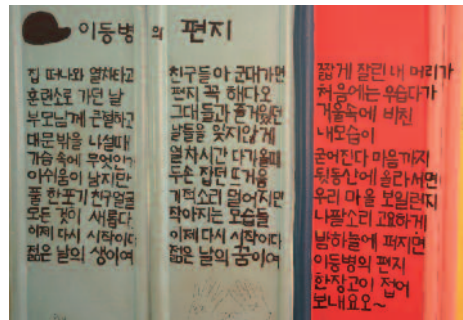 이등병의 편지
집 떠나와 열차타고
훈련소로 가던 날
부모님께 큰절하고
대문밖을 나설때
가슴속에 무엇인가
아쉬움이 남지만
풀 한포기 친구얼굴
모든 것이 새롭다
이제 다시 시작이다
젊은 날의 생이여
친구들아 군대가면
편지 꼭 해다오
그대들과 즐거웠던
날들을 잊지않게
열차시간 다가올때
두손 잡던 뜨거움
기적소리 멀어지면
작아지는 모습들
이제 다시 시작이다
젊은 날의 꿈이여
짧게 잘린 내 머리가
처음에는 우습다가
거울속에 비친
내모습이
굳어진다 마음까지
뒷동산에 올라서면
우리 마을 보일런지
나팔소리 고요하게
밤하늘에 퍼지면
이등병의 편지
한장고이 접어
보내요오~